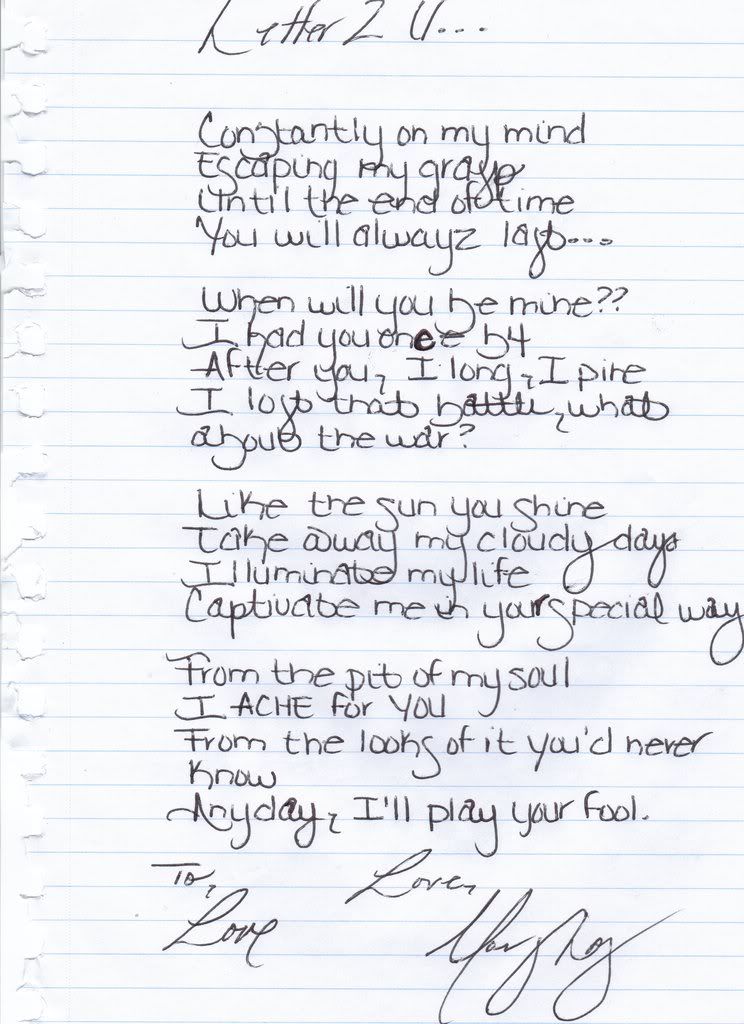 Letter 2 U...
Constantly on my mind
Escaping my grasp
Until the end of time
You will alwayz last...
When will you be mine??
I had you once b4
After you, I long, I pine
I lost that battle, what
about the war?
Like the sun you shine
Take away my cloudy days
Illuminate my life
Captivate me in your special way
From the pit of my soul
I ACHE for YOU
From the looks of it you'd never
know
Anyday, I'll play your fool.
To, Love,
Love